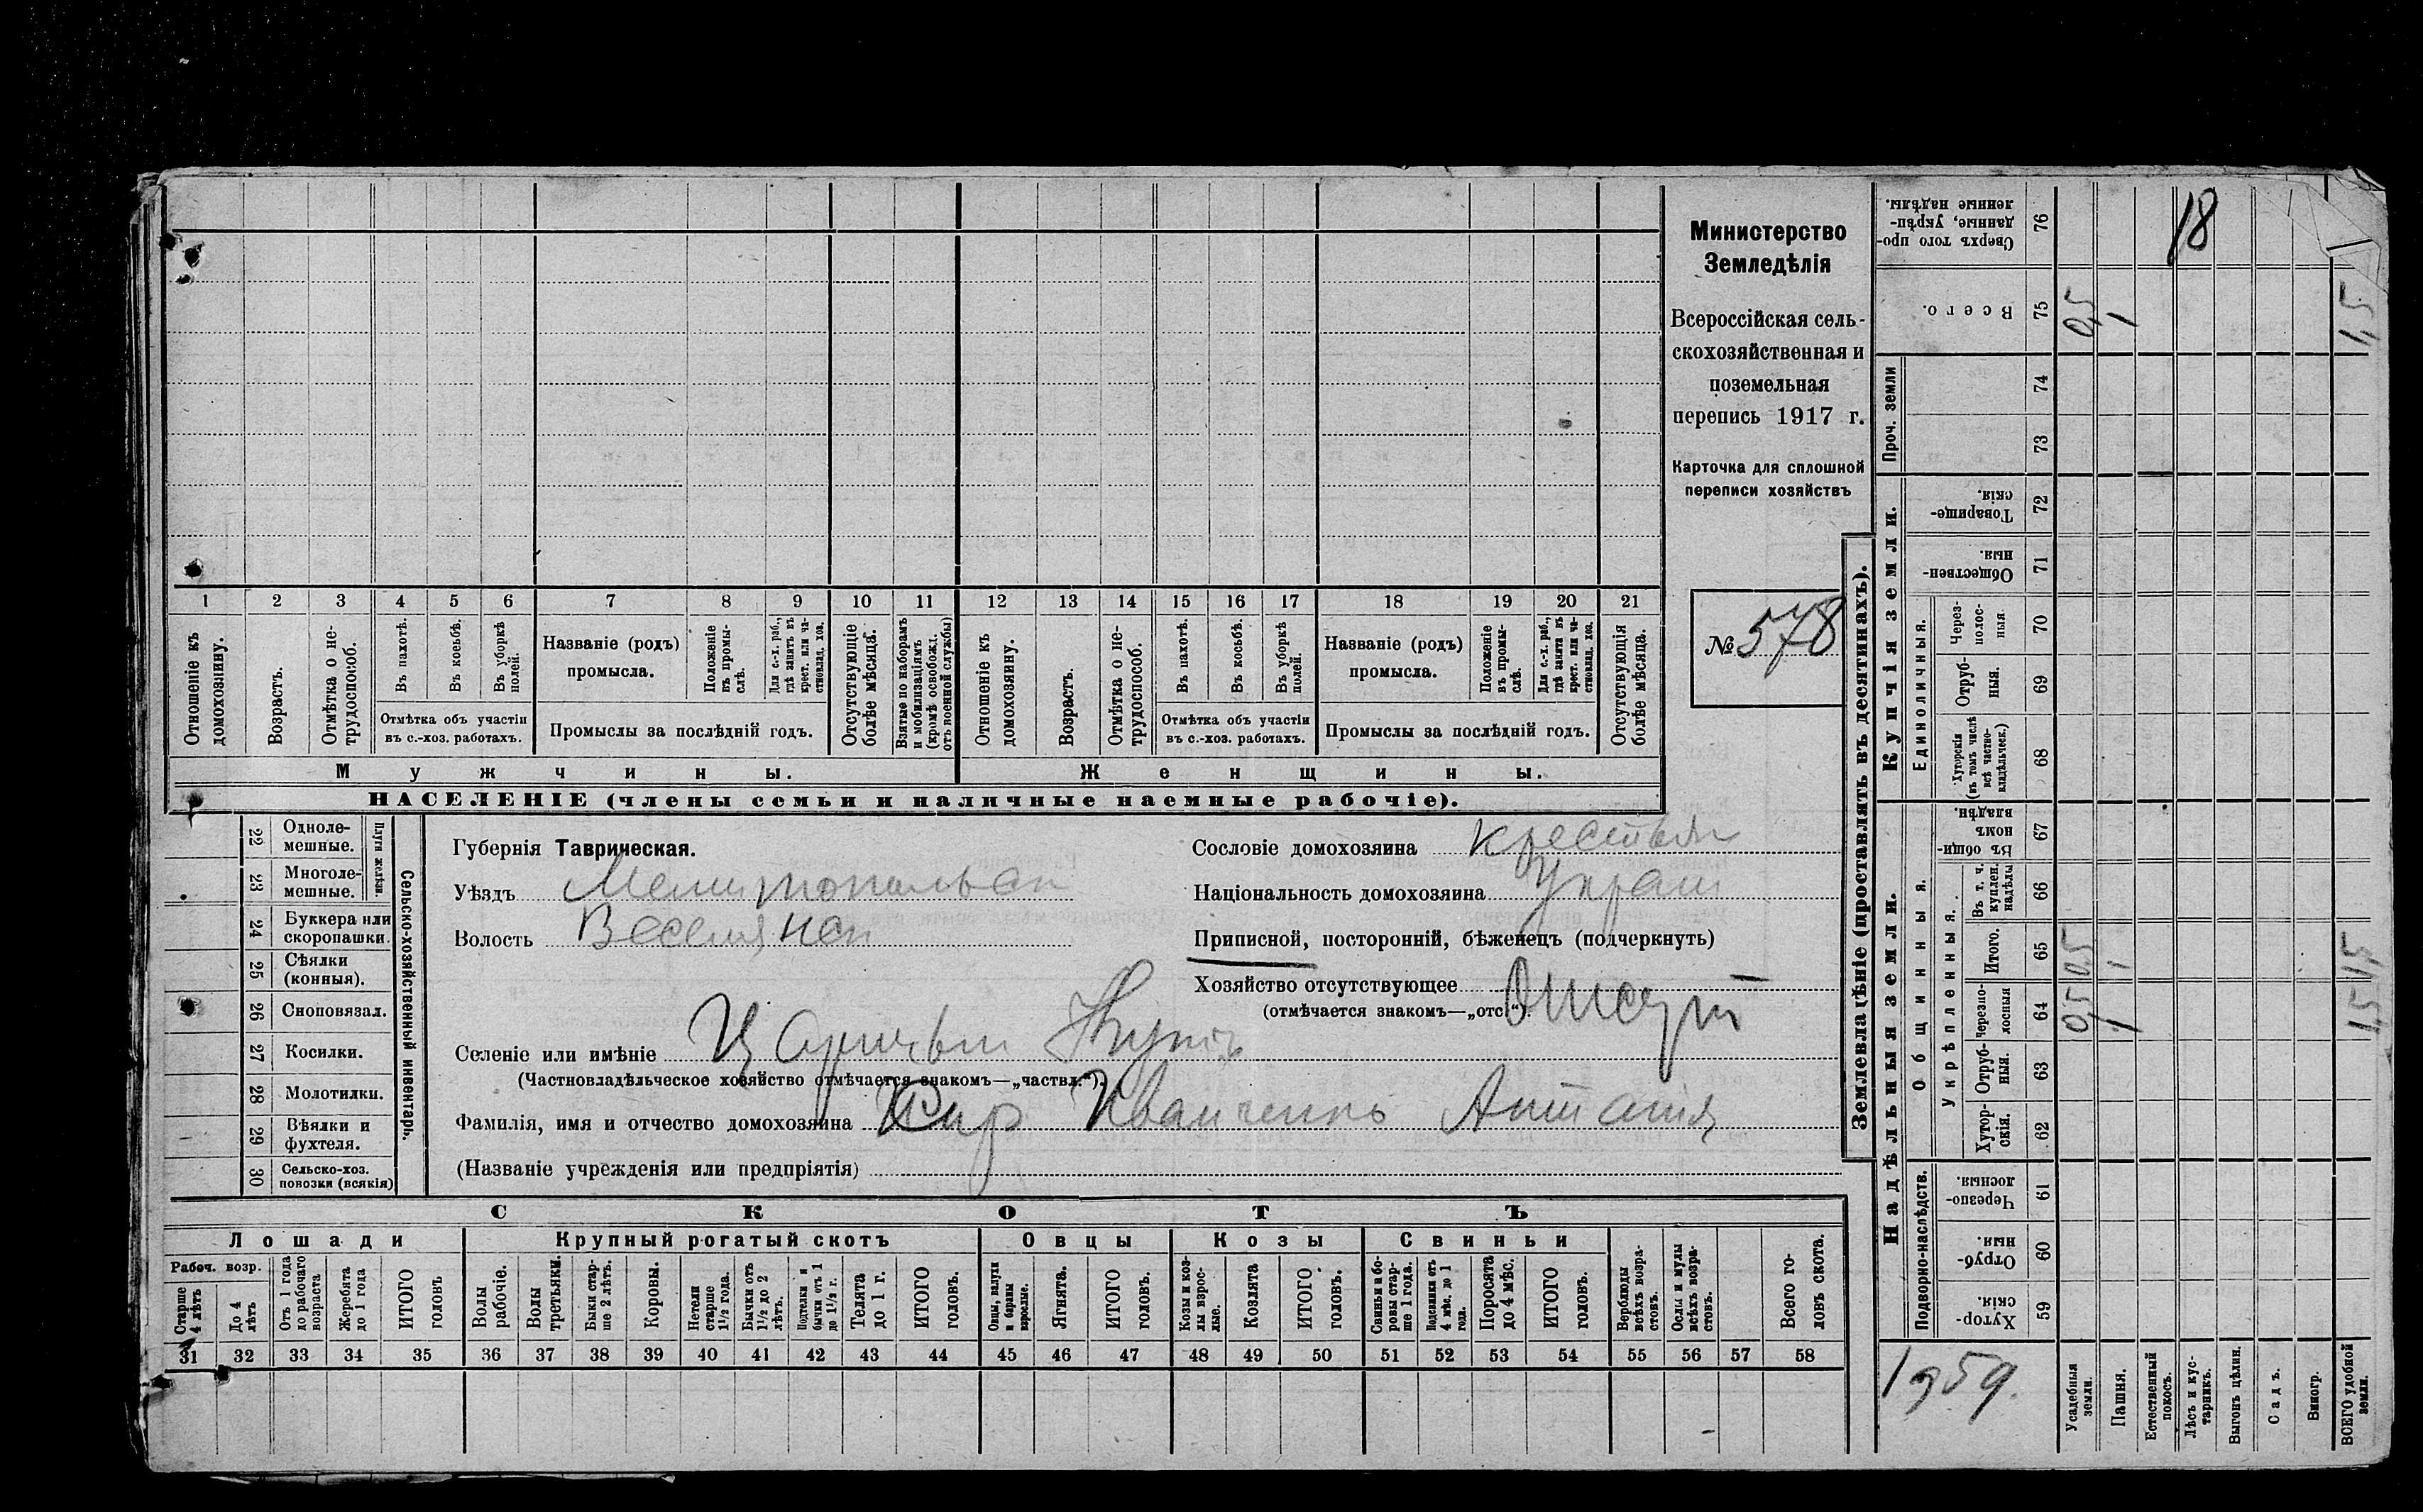 Министерство
Земледѣлія
Всероссійская сель-
скохозяйственная и
поземельная
перепись 1917 г.
Карточка для сплошной
переписи хозяйствъ
№ 578
1 2 3 4 5 6 7 8 9 10 11 12 13 14 15 16 17 18 19 20 21
Отношеніе къ домохозяину.
Возрастъ.
Отмѣтка о не-трудоспособ.
Въ пахотѣ.
Въ косьбѣ.
Въ уборкѣ полей.
Отмѣтка объ участіи
въ с.-хоз. работахъ.
Названіе (родъ)
промысла.
Положеніе въ промы-слѣ.
Для с.-х. раб., гдѣ занятъ въ крест. или ча-стновлад. хоз.
Промыслы за послѣдній годъ.
Отсутствующіе болѣе мѣсяца.
Взятые по наборамъ и мобилизаціямъ (кромѣ освобожд. отъ военной службы)
Отношеніе къ домохозяину.
Возрастъ.
Отмѣтка о не-трудоспособ.
Въ пахотѣ.
Въ косьбѣ.
Въ уборкѣ полей.
Отмѣтка объ участіи
въ с.-хоз. работахъ.
Названіе (родъ)
промысла.
Положеніе въ промы-слѣ.
Для с.-х. раб., гдѣ занятъ въ крест. или ча-стновлад. хоз.
Промыслы за послѣдній годъ.
Отсутствующія болѣе мѣсяца.
Мужчины. Женщины.
НАСЕЛЕНІЕ (члены семьи и наличные наемные рабочіе).
22 Одноле-мешные.
23 Многоле-мешные.
Плуги желѣзн.
24 Буккера или скоропашки.
25 Сѣялки (конныя).
26 Сноповязал.
27 Косилки.
28 Молотилки.
29 Вѣялки и фухтеля.
30 Сельско-хоз. повозки (всякія)
Сельско-хозяйственный инвентарь.
Губернія Таврическая.
Уѣздъ
Волость
Сословіе домохозяина крестьян
Національность домохозяина Украин
Приписной, посторонній, бѣженецъ (подчеркнуть)
Хозяйство отсутствующее Отсут
(отмѣчается знакомъ—„отс“).
Селеніе или имѣніе
(Частновладѣльческое хозяйство отмѣчается знакомъ—„частвл.“).
Фамилія, имя и отчество домохозяина Иванченко
(Названіе учрежденія или предпріятія)
СКОТЪ
Лошади Крупный рогатый скотъ Овцы Козы Свиньи
Рабоч. возр.
Старше 4 лѣтъ
До 4 лѣтъ
Отъ 1 года до рабочаго возраста
Жеребята до 1 года
ИТОГО головъ
Волы рабочіе.
Волы третьяки.
Быки стар-ше 2 лѣтъ.
Коровы.
Нетели старше 1½ года.
Бычки отъ 1½ до 2 лѣтъ.
Подтелки и бычки отъ 1 до 1½ г.
Телята до 1 г.
ИТОГО головъ.
Овцы, валухи и бараны взрослые.
Ягнята.
ИТОГО головъ.
Козы и коз-лы взрос-лые.
Козлята
ИТОГО головъ.
Свиньи и бо-ровы стар-ше 1 года.
Подсвинки отъ 4 мѣс. до 1 года.
Поросята до 4 мѣс.
ИТОГО головъ.
Верблюды всѣхъ возра-стовъ.
Ослы и мулы всѣхъ возра-стовъ.
Всего го-ловъ скота.
31 32 33 34 35 36 37 38 39 40 41 42 43 44 45 46 47 48 49 50 51 52 53 54 55 56 57 58
Землевладѣніе (проставлять въ десятинахъ).
Сверхъ того про-данные, укрѣп-ленные надѣлы. 76
18
Всего. 75 0,5 1 1,5
Проч. земли 74 73
Купчія земли.
Товарище-скія. 72
Обществен-ныя. 71
Единоличныя.
Через-полос-ныя 70
Отруб-ныя. 69
Хуторскія (въ томъ числѣ всѣ частно-владѣльческ.) 68
Надѣльныя земли.
Общинныя.
Въ общи-номъ владѣн. 67
Укрѣпленныя.
Въ т. ч. куплен. надѣлы 66
Итого. 65 0,5 1 1,5
Черезпо-лосныя 64 0,5 1 1,5
Отруб-ныя. 63
Хутор-скія. 62
Подворно-наслѣдств.
Черезпо-лосныя. 61
Отруб-ныя. 60
Хутор-скія. 59
1959.
Усадебныя земли.
Пашня.
Естественный покосъ.
Лѣсъ и кус-тарникъ.
Выгонъ цѣлин.
Садъ.
Виногр.
ВСЕГО удобной земли.